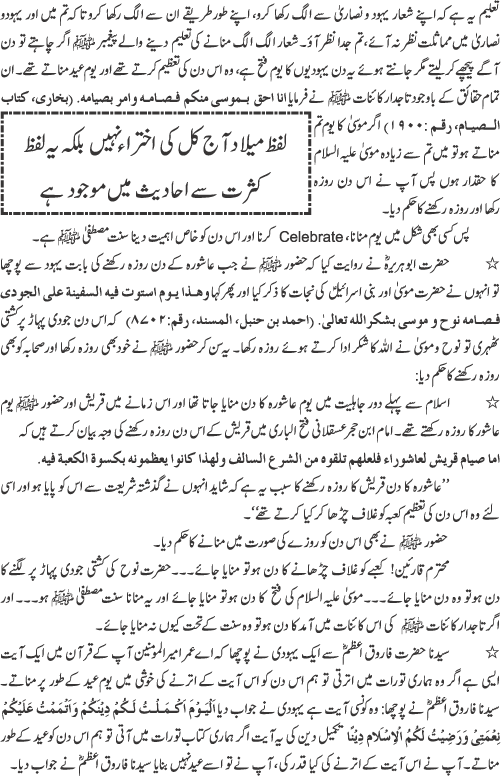 تعلیم یہ ہے کہ اپنے شعار یہود و نصاریٰ سے الگ رکھا کرو، اپنے طور طریقے ان سے الگ رکھا کرو تا کہ تم میں اور یہود
و نصاریٰ میں مماثلت نظر نہ آئے، تم جدا نظر آؤ۔ شعار الگ الگ منانے کی تعلیم دینے والے پیغمبر ﷺ اگر چاہتے تو دن
آگے پیچھے کر لیتے مگر جانتے ہوئے یہ دن یہودیوں کا یوم فتح ہے، وہ اس دن کی تعظیم کرتے تھے اور یوم عید مناتے تھے۔ ان
تمام حقائق کے باوجود تاجدار کائنات ﷺ نے فرمایا انا احق بموسی منکم فصامه وامر بصیامه. (بخاری، کتاب
الصیام، رقم: ۱۹۰۰) اگر موسیٰ کا یوم تم
مناتے ہو تو میں تم سے زیادہ موسیٰ علیہ السلام
کا حقدار ہوں پس آپ نے اس دن روزہ
رکھا اور روزہ رکھنے کا حکم دیا۔
لفظ میلاد آج کل کی اختراء نہیں بلکہ یہ لفظ
کثرت سے احادیث میں موجود ہے
پس کسی بھی شکل میں یوم منانا، Celebrate کرنا اور اس دن کو خاص اہمیت دینا سنت مصطفیٰ ﷺ ہے۔
☆ حضرت ابوہریرہؓ نے روایت کیا کہ حضور ﷺ نے جب عاشورہ کے دن روزہ رکھنے کی بابت یہود سے پوچھا
تو انہوں نے حضرت موسیٰ اور بنی اسرائیل کی نجات کا ذکر کیا اور پھر کہا وهذا یوم استوت فیه السفینة علی الجودی
فصامه نوح و موسی بشکر الله تعالیٰ. (احمد بن حنبل، المسند، رقم: ۸۷۰۲) کہ اس دن جودی پہاڑ پر کشتی
ٹھہری تو نوح و موسیٰ نے اللہ کا شکر ادا کرتے ہوئے روزہ رکھا۔ یہ سن کر حضور ﷺ نے خود بھی روزہ رکھا اور صحابہ کو بھی
روزہ رکھنے کا حکم دیا:
☆ اسلام سے پہلے دور جاہلیت میں یوم عاشورہ کا دن منایا جاتا تھا اور اس زمانے میں قریش اور حضور ﷺ یوم
عاشور کا روزہ رکھتے تھے۔ امام ابن حجر عسقلانی فتح الباری میں قریش کے اس دن روزہ رکھنے کی وجہ بیان کرتے ہیں کہ
اما صیام قریش لعاشوراء فلعلهم تلقوه من الشرع السالف ولهذا کانوا یعظمونه بکسوة الکعبة فیه.
‘‘عاشورہ کا دن قریش کا روزہ رکھنے کا سبب یہ ہے کہ شاید انہوں نے گذشتہ شریعت سے اس کو پایا ہو اور اسی
لئے وہ اس دن کی تعظیم کعبہ کو غلاف چڑھا کر کیا کرتے تھے’’۔
حضور ﷺ نے بھی اس دن کو روزے کی صورت میں منانے کا حکم دیا۔
محترم قارئین! کعبے کو غلاف چڑھانے کا دن ہو تو منایا جائے۔۔۔ حضرت نوح کی کشتی جودی پہاڑ پر لگنے کا
دن ہو تو وہ دن منایا جائے۔۔۔ موسیٰ علیہ السلام کی فتح کا دن ہو تو منایا جائے اور یہ منانا سنت مصطفیٰ ﷺ ہو۔۔۔ اور
اگر تاجدار کائنات ﷺ کی اس کائنات میں آمد کا دن ہو تو وہ سنت کے تحت کیوں نہ منایا جائے۔
☆ سیدنا حضرت فاروق اعظمؓ سے ایک یہودی نے پوچھا کہ اے عمر امیر المومنین آپ کے قرآن میں ایک آیت
ایسی ہے اگر وہ ہماری تورات میں اترتی تو ہم اس دن کو اس آیت کے اترنے کی خوشی میں یوم عید کے طور پر مناتے۔
سیدنا فاروق اعظمؓ نے پوچھا: وہ کونسی آیت ہے یہودی نے جواب دیا اَلْیَوْمَ اَکْمَلْتُ لَکُمْ دِیْنَکُمْ وَاَتْمَمْتُ عَلَیْکُمْ
نِعْمَتِیْ وَرَضِیْتُ لَکُمُ الْاِسْلَامَ دِیْنًا تکمیل دین کی یہ آیت اگر ہماری کتاب تورات میں آتی تو ہم اس دن کو عید کے طور
پر مناتے۔ آپ نے اس آیت کے اترنے کی کیا خوشی کی، آپ نے تو اسے عید نہیں بنایا سیدنا فاروق اعظمؓ نے جواب دیا۔